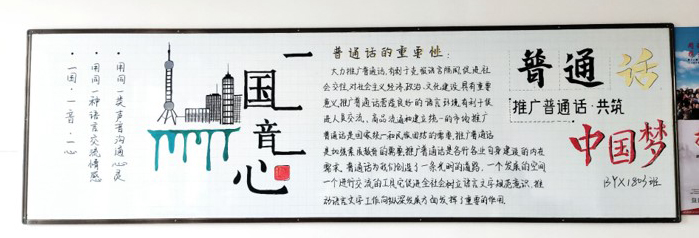 普通话
推广普通话·共筑
中国梦
BYX1803班
普通话的重要性：
大力推广普通话，有利于克服语言隔阂，促进社
会交往，对社会主义经济、政治、文化建设，具有重要
意义，推广普通话营造良好的语言环境，有利于促
进人员交流，商品流通和建立统一的市场，推广
普通话是国家统一和民族团结的需要，推广普通话
是加强素质教育的需要，推广普通话是各行各业自身建设的内在
需求。普通话为我们创造了一条光明的道路，一个发展的空间
一个进行交流的工具，它促进全社会树立语言文字规范意识，推
动语言文字工作向纵深发展方面发挥了重要的作用。
一国音心
·用同一类声音沟通心灵
·用同一种语言交流情感
·一国·一音·一心